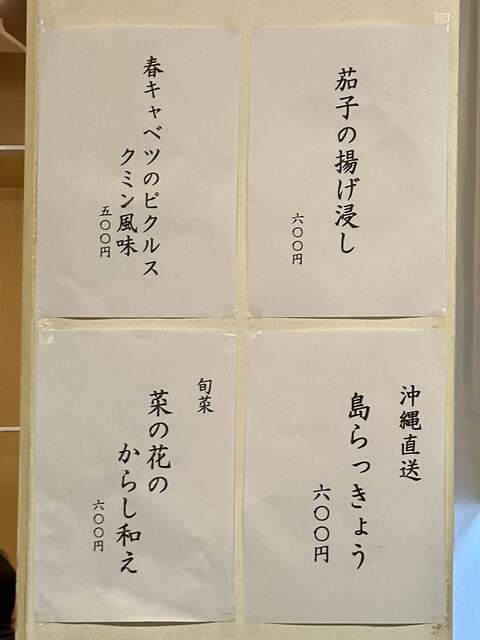 茄子の揚げ浸し
六〇〇円
春キャベツのピクルス
クミン風味
五〇〇円
沖縄直送
島らっきょう
六〇〇円
旬菜
菜の花の
からし和え
六〇〇円